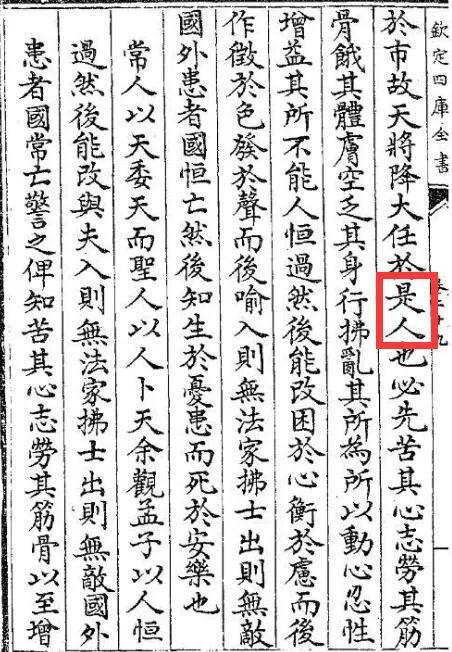 欽定四庫全書
卷二十九
於市故天將降大任於是人也必先苦其心志勞其筋
骨餓其體膚空乏其身行拂亂其所為所以動心忍性
增益其所不能人恒過然後能改困於心衡於慮而後
作徵於色發於聲而後喻入則無法家拂士出則無敵
國外患者國恒亡然後知生於憂患而死於安樂也
常人以天委天而聖人以人卜天余觀孟子以人恒
過然後能改與夫入則無法家拂士出則無敵國外
患者國常亡警之俾知苦其心志勞其筋骨以至增